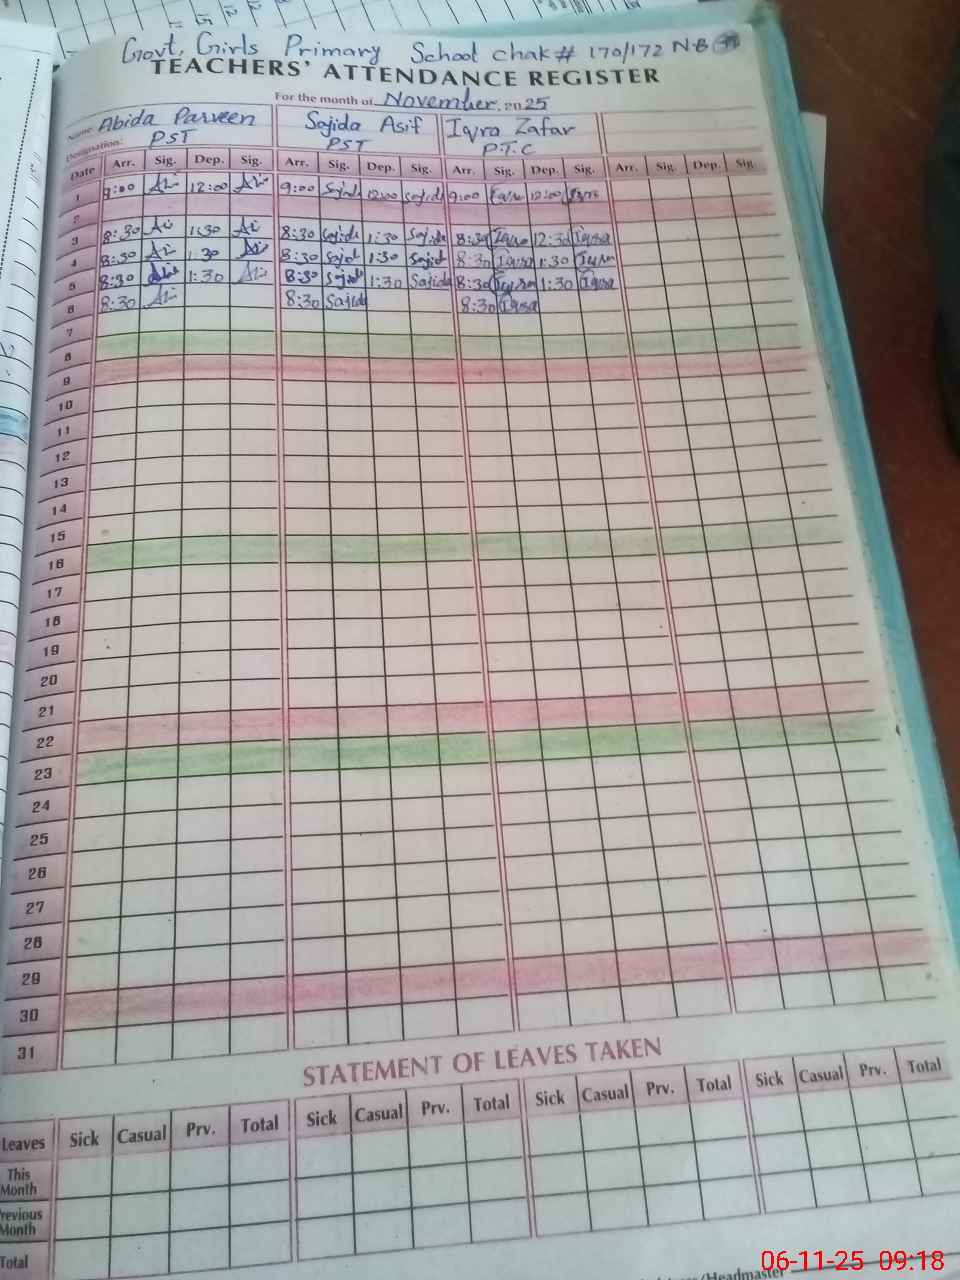 Govt, Girls Primary School chak # 170/172 N-B
TEACHERS' ATTENDANCE REGISTER
For the month of November. 2025
Name: Abida Parveen Sajida Asif Iqra Zafar
Designation: PST PST P.T.C
Date Arr. Sig. Dep. Sig. Arr. Sig. Dep. Sig. Arr. Sig. Dep. Sig. Arr. Sig. Dep. Sig.
1 9:00 12:00 9:00 Sajida 12:00 Sajida 9:00 Iqra 12:00 Iqra
2
3 8:30 1:30 8:30 Sajida 1:30 Sajida 8:30 Iqra 12:30 Iqra
4 8:30 1:30 8:30 Sajid 1:30 Sajid 8:30 Iqra 1:30 Iqra
5 8:30 1:30 8:30 Sajid 1:30 Sajida 8:30 Iqra 1:30 Iqra
6 8:30 8:30 Sajida 8:30 Iqra
7
8
9
10
11
12
13
14
15
16
17
18
19
20
21
22
23
24
25
26
27
28
29
30
31
STATEMENT OF LEAVES TAKEN
Leaves Sick Casual Prv. Total Sick Casual Prv. Total Sick Casual Prv. Total Sick Casual Prv. Total
This
Month
Previous
Month
Total
/Headmaster
06-11-25 09:18